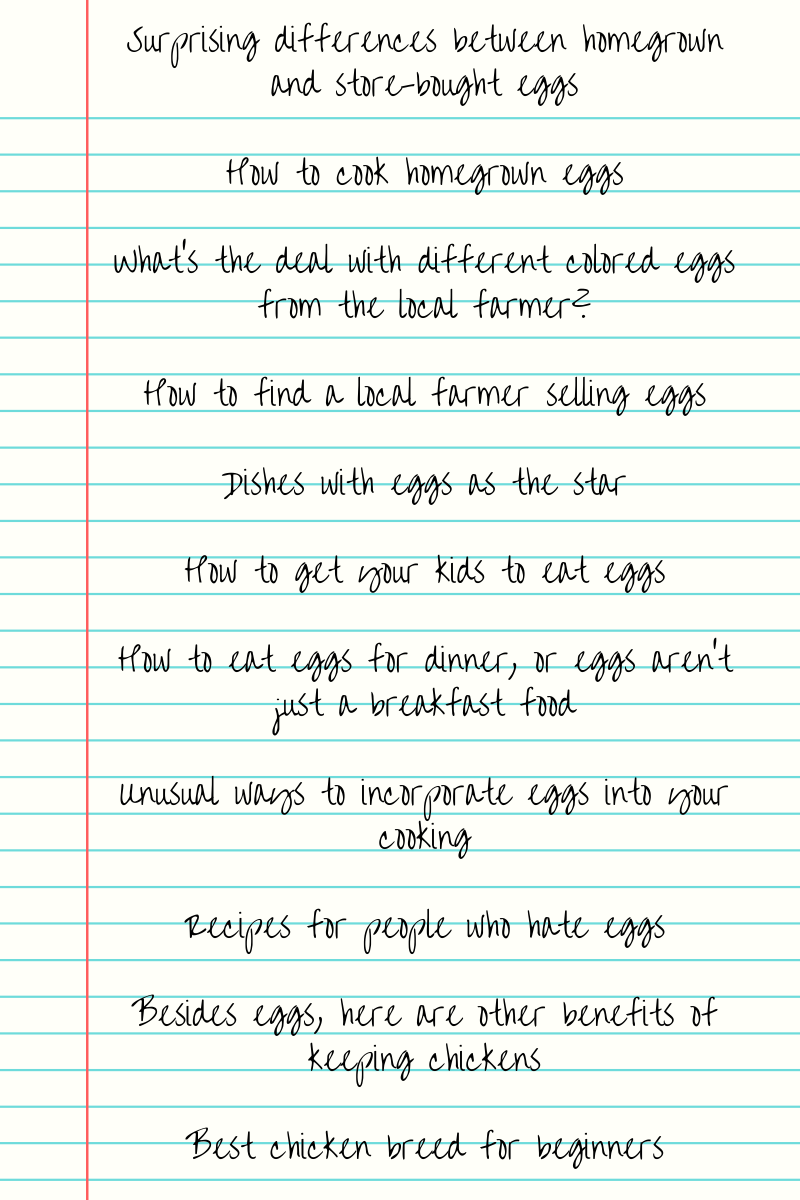 Surprising differences between homegrown
and store-bought eggs
How to cook homegrown eggs
What's the deal with different colored eggs
from the local farmer?
How to find a local farmer selling eggs
Dishes with eggs as the star
How to get your kids to eat eggs
How to eat eggs for dinner, or eggs aren't
just a breakfast food
Unusual ways to incorporate eggs into your
cooking
Recipes for people who hate eggs
Besides eggs, here are other benefits of
keeping chickens
Best chicken breed for beginners